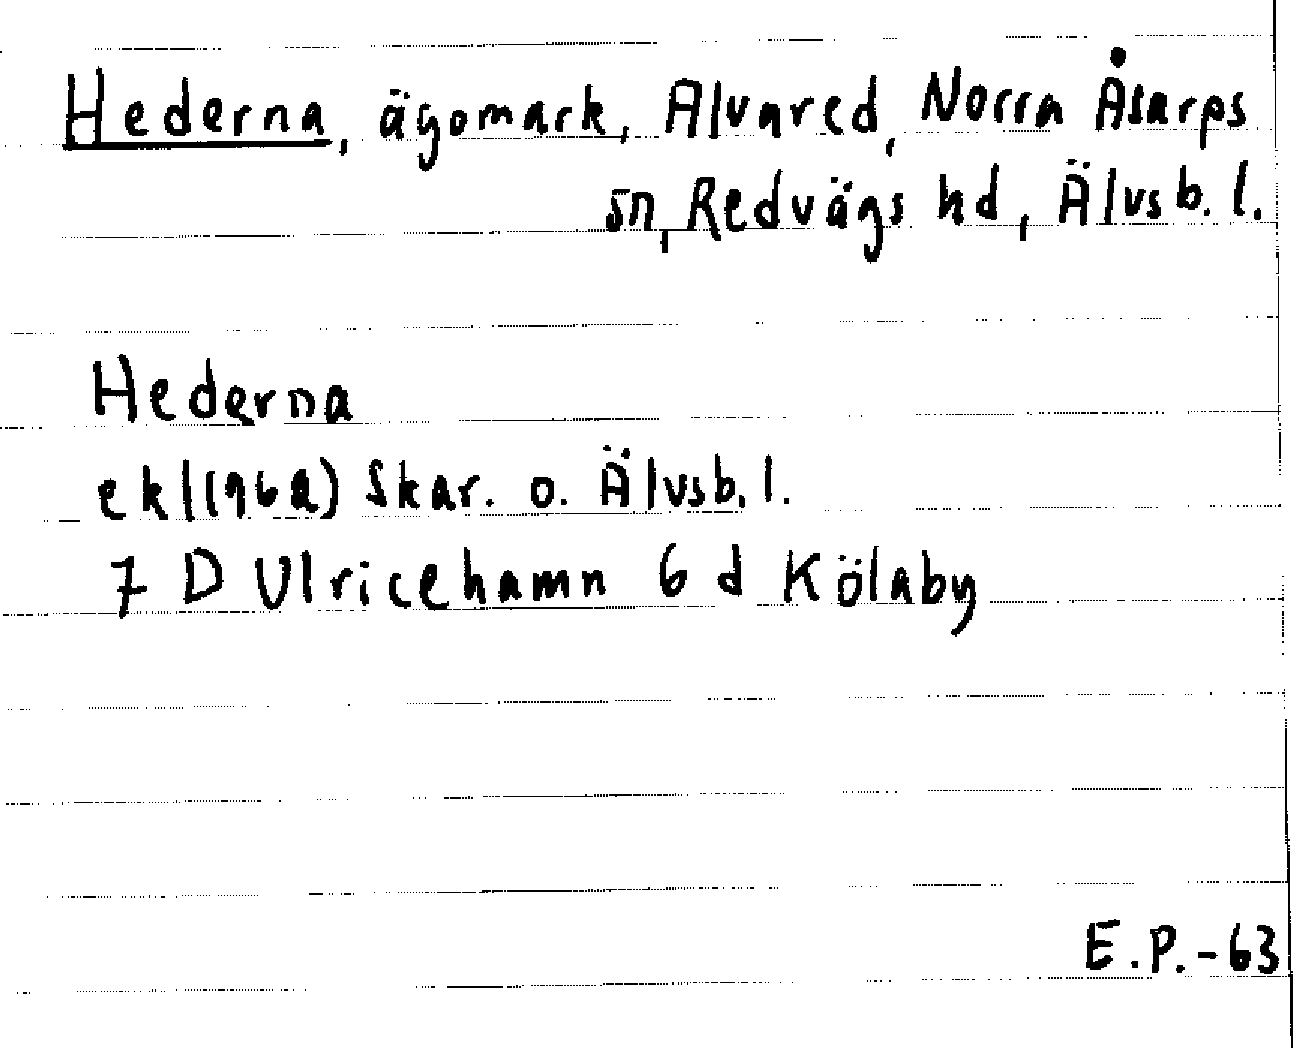 Hederna, ägomark, Alvared, Norra Åsarps
sn, Redvägs hd, Älvsb. l.
Hederna
ekl(1962) Skar. o. Älvsb. l.
7 D Ulricehamn 6 d Kölaby
E.P.-63